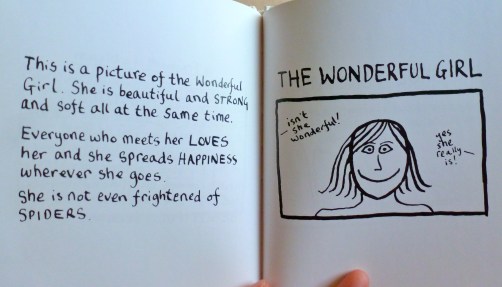 This is a picture of the Wonderful
Girl. She is beautiful and STRONG
and soft all at the same time.
Everyone who meets her LOVES
her and she spreads HAPPINESS
wherever she goes.
She is not even frightened of
SPIDERS.
THE WONDERFUL GIRL
isn't
she
wonderful!
yes
she
really
is!